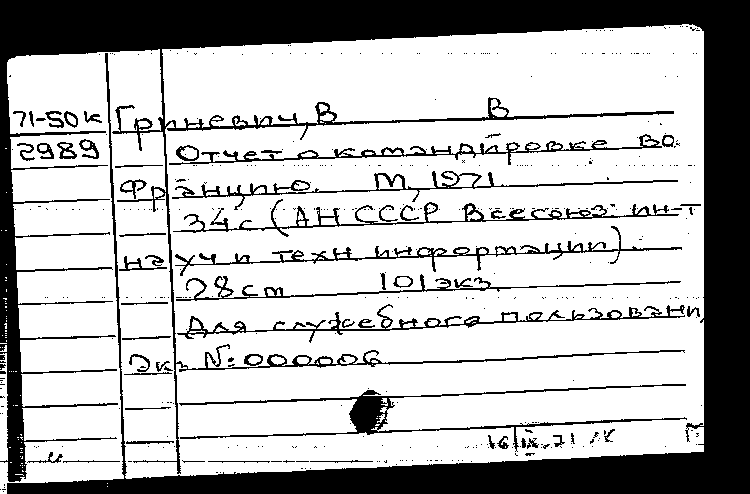 71-50к Гриневич, В В
2989 Отчет о командировке во
Францию. М, 1971
34с (АН СССР Всесоюз. ин-т
науч и техн информации).
28cm 101 экз.
Для служебного пользовани
Экз №: 000006
16/IX-71 /К Г